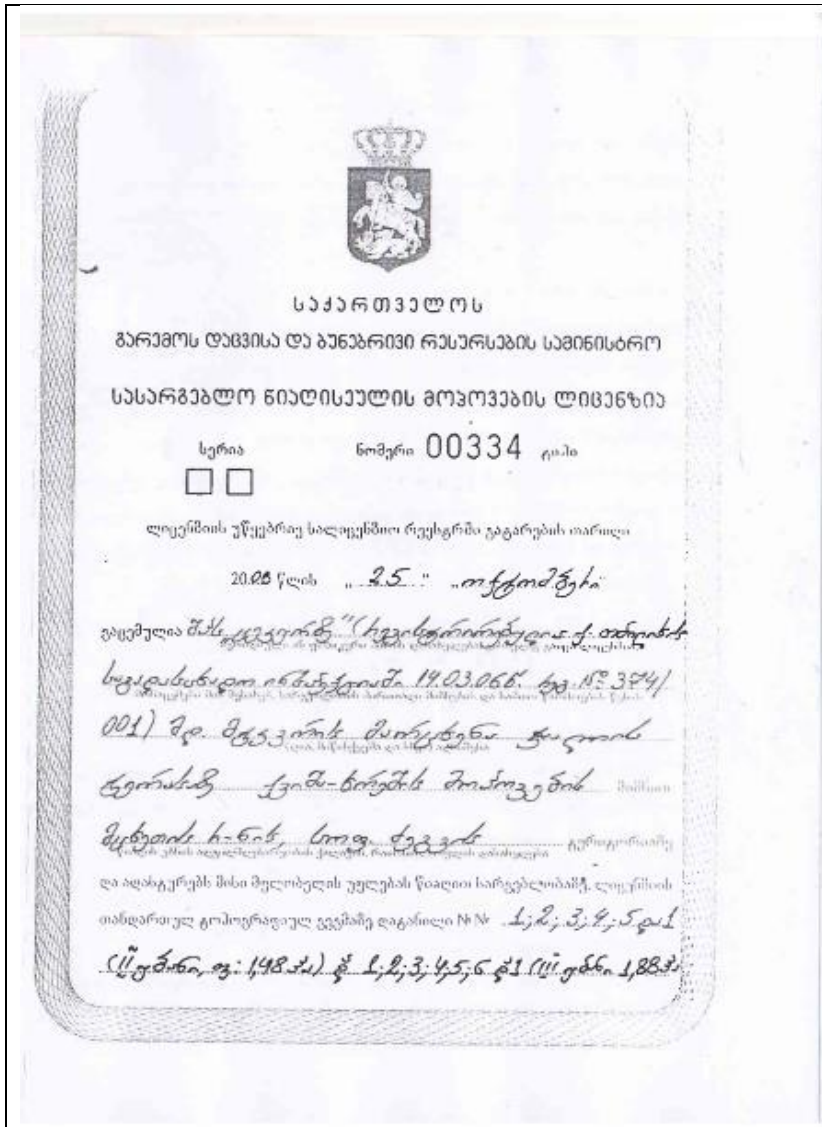 საქართველოს
გარემოს დაცვისა და ბუნებრივი რესურსების სამინისტრო
სასარგებლო წიაღისეულის მოპოვების ლიცენზია
სერია ნომერი 00334 ტიპი
ლიცენზიის უწყებრივ სალიცენზიო რეესტრში გატარების თარიღი
2006 წლის „ 25 " „ოქტომბერი
გაცემულია შპს (რეგისტრირებულია ქ. თბილისის
საგადასახადო ინსპექციაში 14.03.06წ. რეგ. № 374/
001) მდ. მტკვრის მარცხენა ჭალის
ტერასაზე ქვიშა-ხრეშის მოპოვების მიზნით
მცხეთის რ-ნის, სოფ. ძეგვის ტერიტორიაზე
და ადასტურებს მისი მფლობელის უფლებას წიაღით სარგებლობაზე, ლიცენზიის
თანდართულ ტოპოგრაფიულ გეგმაზე დატანილი №№ 1; 2; 3; 4; 5 და 1
(II უბანი, ფ: 1,48 ჰა) და 1; 2; 3; 4; 5; 6 და 1 (III უბანი 1,88 ჰა